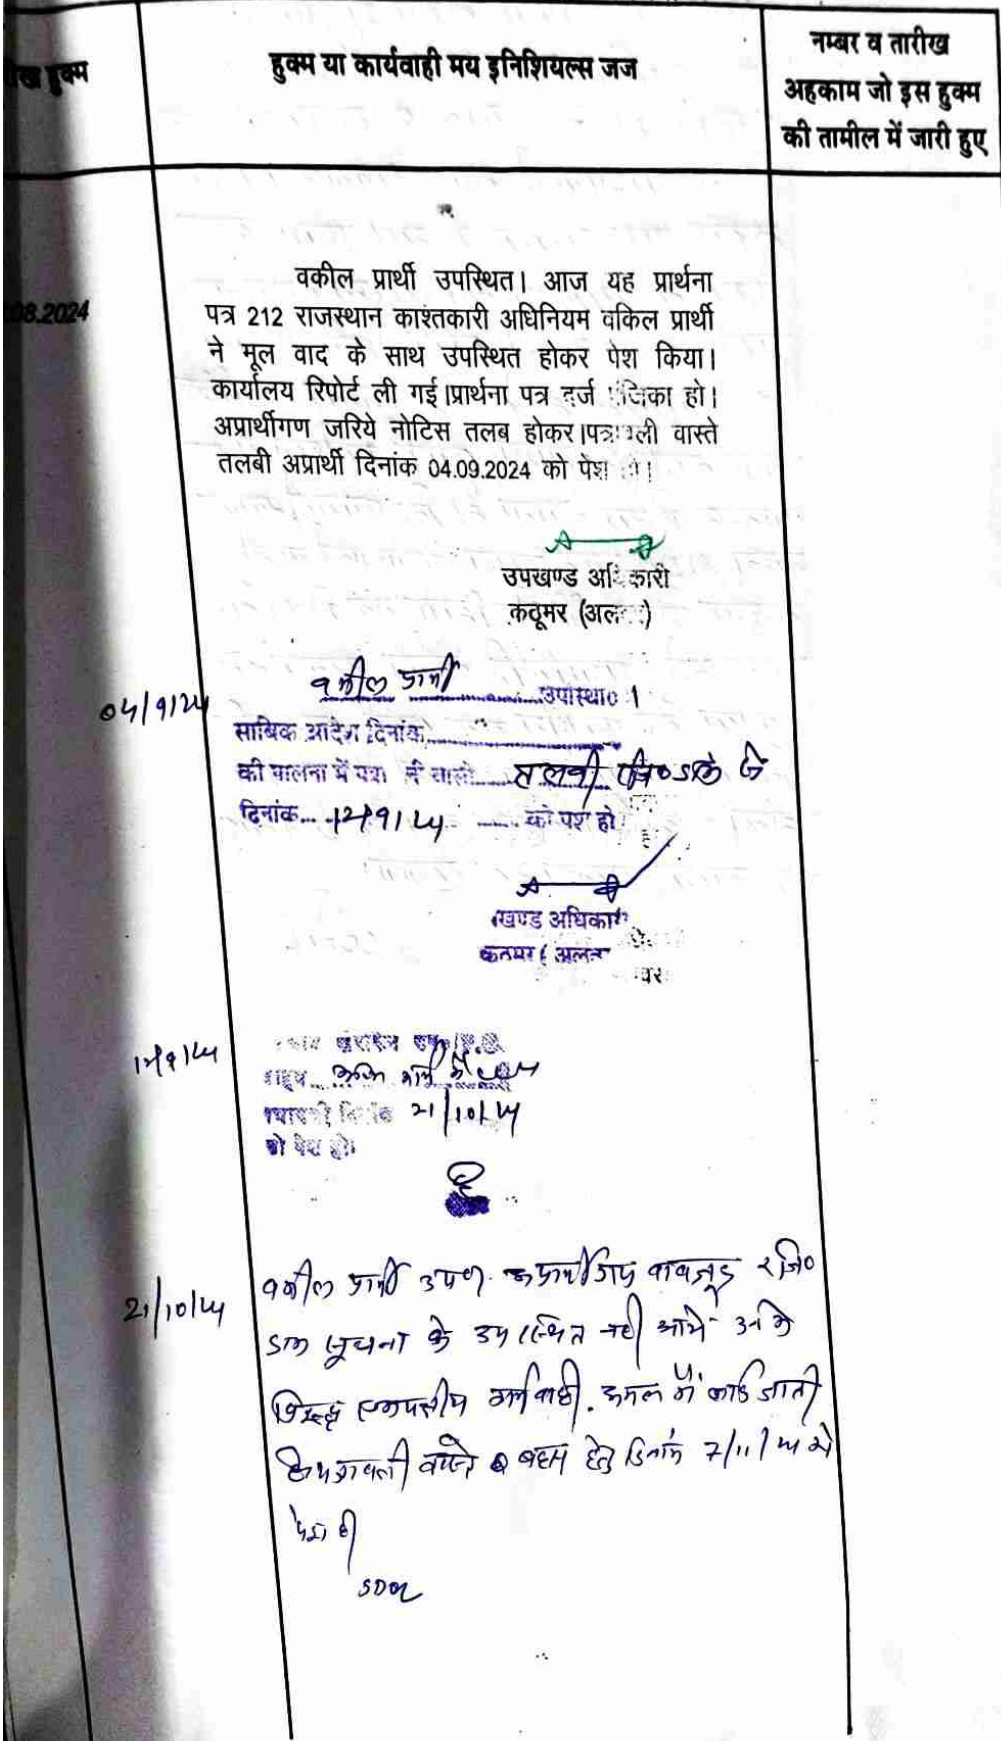 हुक्म
हुक्म या कार्यवाही मय इनिशियल्स जज
नम्बर व तारीख
अहकाम जो इस हुक्म
की तामील में जारी हुए
08.2024
वकील प्रार्थी उपस्थित। आज यह प्रार्थना
पत्र 212 राजस्थान काश्तकारी अधिनियम वकिल प्रार्थी
ने मूल वाद के साथ उपस्थित होकर पेश किया।
कार्यालय रिपोर्ट ली गई।प्रार्थना पत्र दर्ज हो।
अप्रार्थीगण जरिये नोटिस तलब होकर।पत्रावली वास्ते
तलबी अप्रार्थी दिनांक 04.09.2024 को पेश
उपखण्ड अधिकारी
कठूमर (अलवर)
04/9/24
वकील प्रार्थी
साबिक आदेश दिनांक
की पालना में तलबी
दिनांक 12/9/24 को पेश हो
खण्ड अधिकारी
12/9/24
21/10/24
को पेश हो।
21/10/24
वकील प्रार्थी उप० अप्रार्थीगण बावजूद रजि०
डाक सूचना के उपस्थित नही आये उनके
विरूद्ध एकपक्षीय कार्यवाही अमल में लाई जाती
है पत्रावली वास्ते बहस हेतु दिनांक 7/11/24 को
पेश हो
SDO